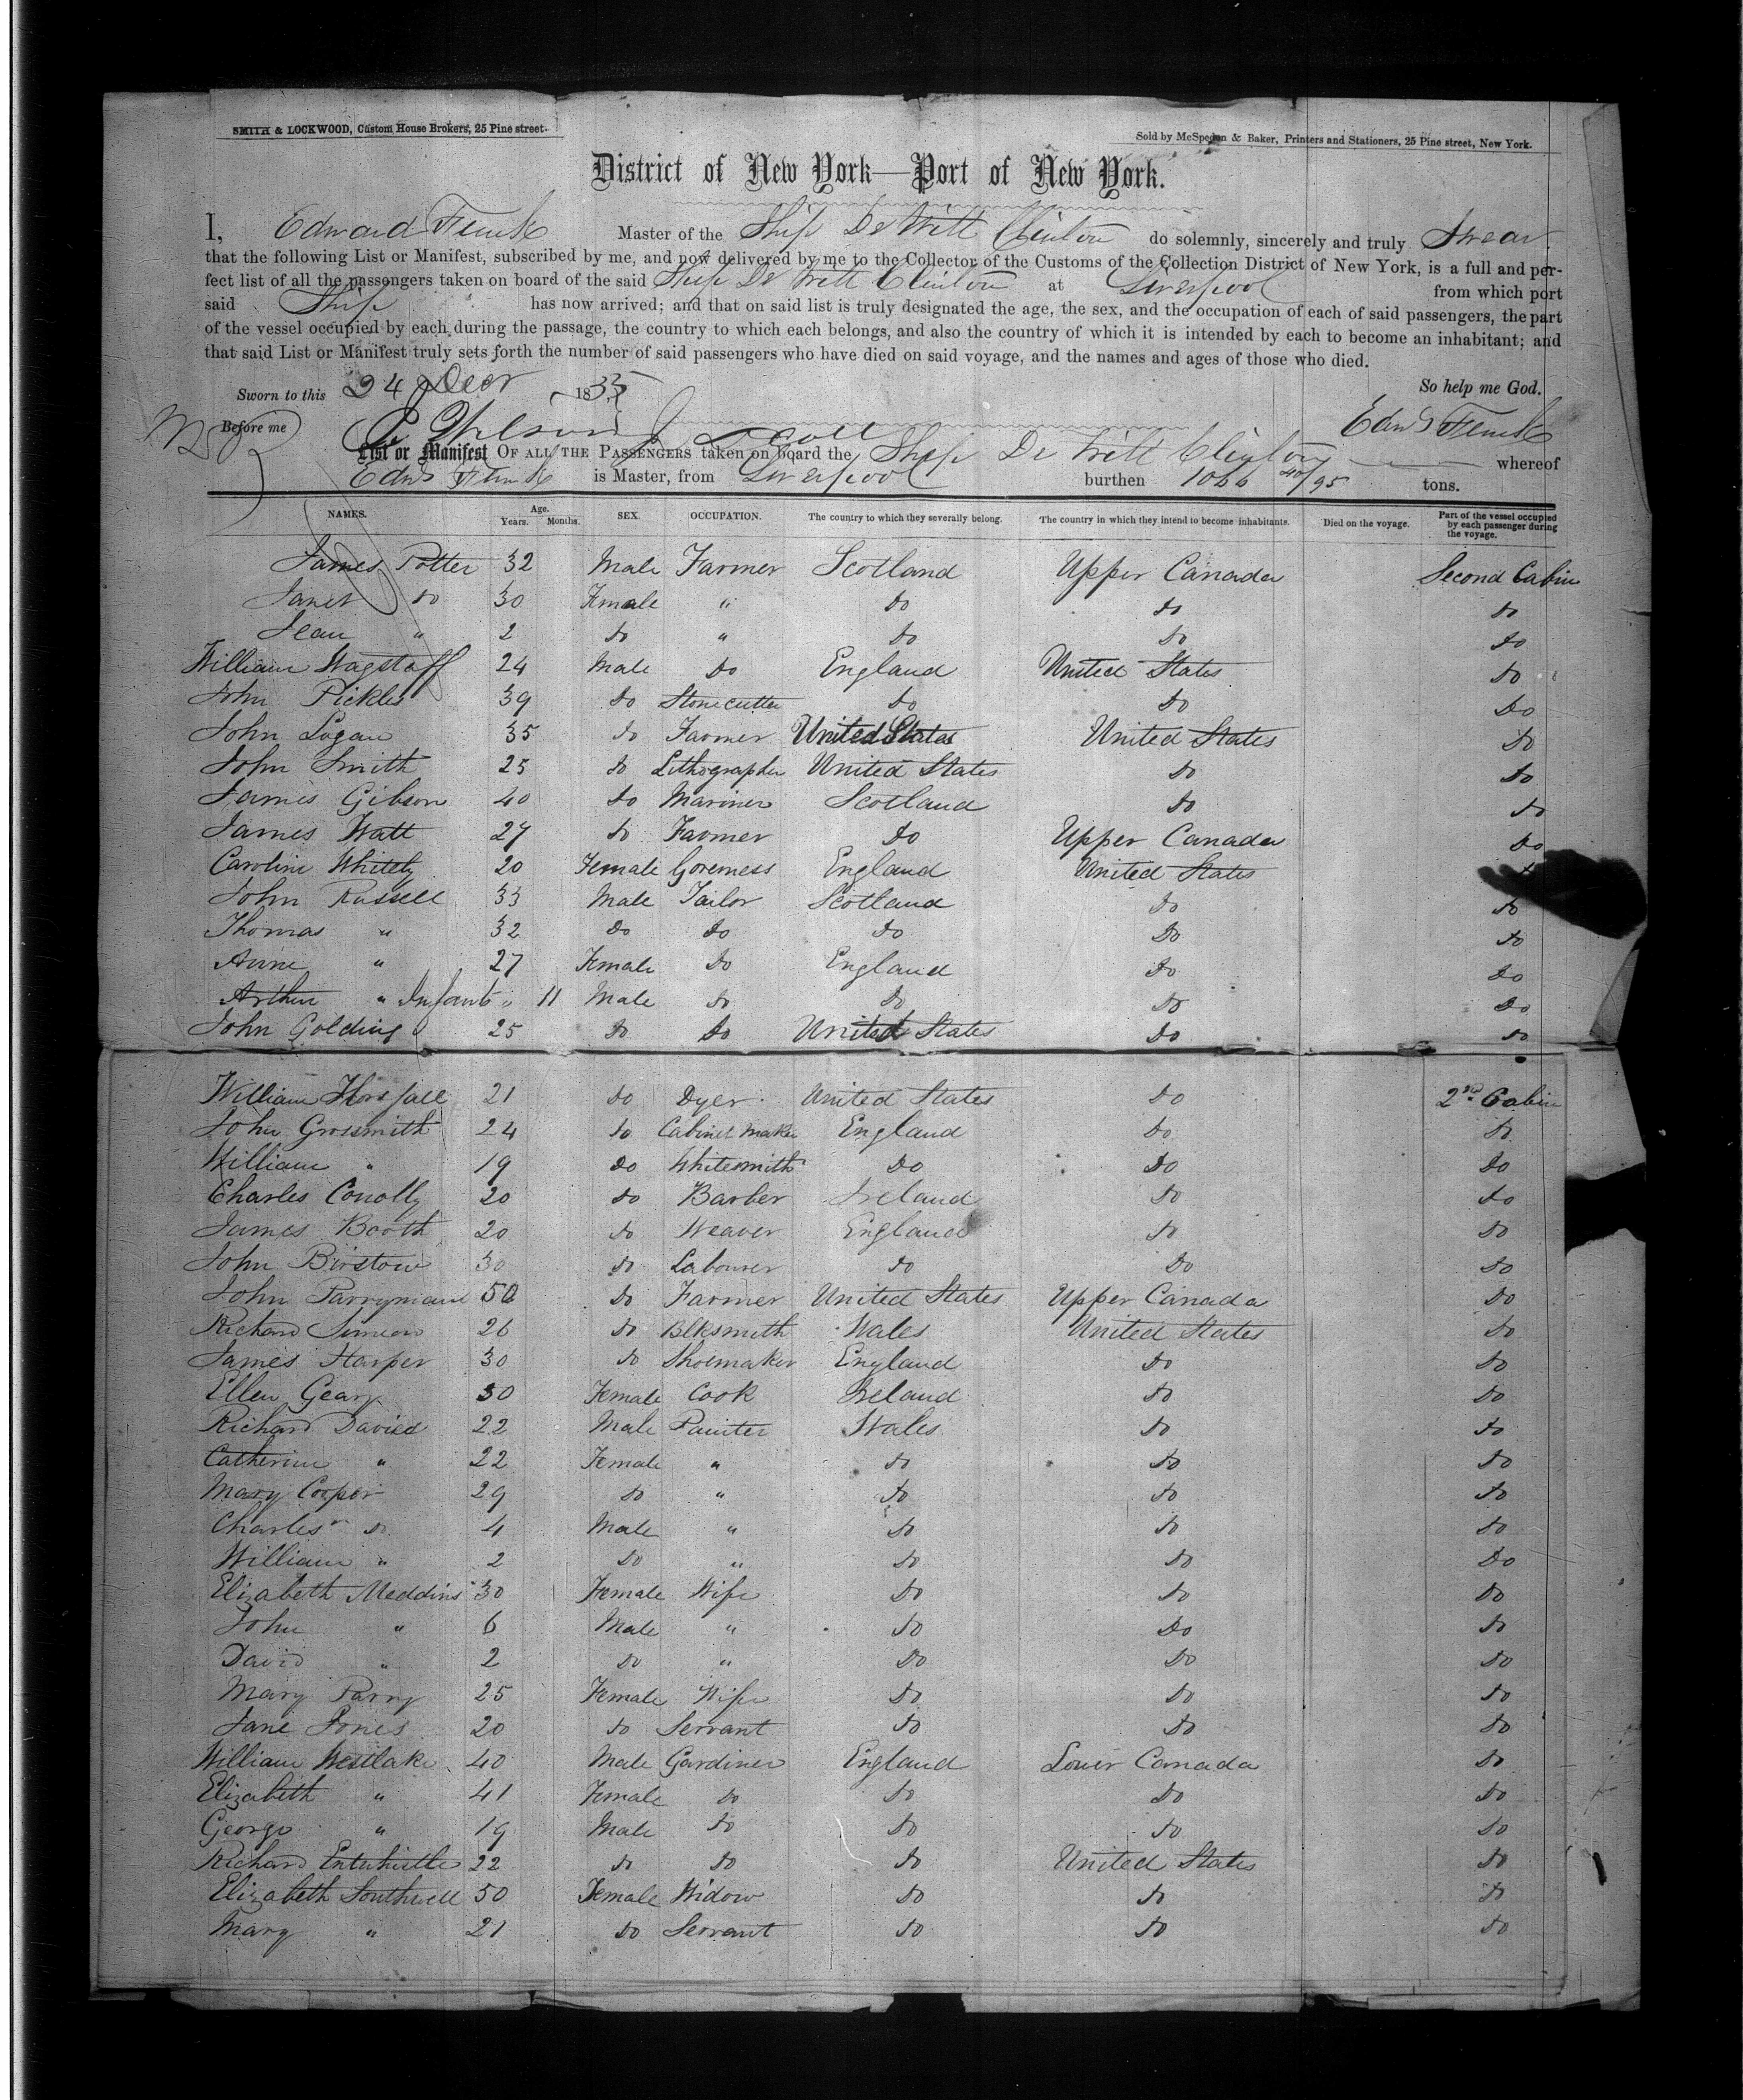 SMITH & LOCKWOOD, Custom House Brokers, 25 Pine street.
Sold by McSpedon & Baker, Printers and Stationers, 25 Pine street, New York.
District of New York—Port of New York.
I, Edward Funk Master of the Ship De Witt Clinton do solemnly, sincerely and truly Swear
that the following List or Manifest, subscribed by me, and now delivered by me to the Collector of the Customs of the Collection District of New York, is a full and per-
fect list of all the passengers taken on board of the said Ship De Witt Clinton at Liverpool from which port
said Ship has now arrived; and that on said list is truly designated the age, the sex, and the occupation of each of said passengers, the part
of the vessel occupied by each during the passage, the country to which each belongs, and also the country of which it is intended by each to become an inhabitant; and
that said List or Manifest truly sets forth the number of said passengers who have died on said voyage, and the names and ages of those who died.
Sworn to this 24 Decr 1855 So help me God.
Before me Edwd Funk
List or Manifest OF ALL THE PASSENGERS taken on board the Ship De Witt Clinton whereof
Edwd Funk is Master, from Liverpool burthen 1066 40/95 tons.
NAMES. Age. Years. Months. SEX. OCCUPATION. The country to which they severally belong. The country in which they intend to become inhabitants. Died on the voyage. Part of the vessel occupied by each passenger during the voyage.
James Potter 32 Male Farmer Scotland Upper Canada Second Cabin
Janet do 30 Female " do do do
Jean " 2 do " do do do
William Wagstaff 24 Male do England United States do
John Pickles 39 do Stonecutter do do Do
John Logan 35 do Farmer United States United States do
John Smith 25 do Lithographer United States do do
James Gibson 40 do Mariner Scotland do do
James Watt 27 do Farmer do Upper Canada do
Caroline Whitely 20 Female Governess England United States do
John Russell 33 Male Tailor Scotland do do
Thomas " 32 Do do do Do do
Anne " 27 Female do England do do
Arthur " Infant " 11 Male do do do do
John Golding 25 do do United States do do
William Horsfall 21 do Dyer United States do 2nd Cabin
John Grosmith 24 do Cabinet Maker England do do
William " 19 do Whitesmith Do Do do
Charles Conolly 20 do Barber Ireland do do
James Booth 20 do Weaver England do do
John Birstow 30 do Labourer do do do
John Parrymaud 50 do Farmer United States Upper Canada do
Richard Simeon 26 do Blksmith Wales United States do
James Harper 30 do Shoemaker England do do
Ellen Geary 30 Female Cook Ireland do do
Richard Davied 22 Male Painter Wales do do
Catherine " 22 Female " do do do
Mary Cooper 29 do " do do do
Charles do 4 Male " do do do
William " 2 do " do do Do
Elizabeth Meddins 30 Female Wife do do do
John " 6 Male " do Do do
David " 2 do " do do do
Mary Parry 25 Female Wife do do do
Jane Jones 20 do Servant do do do
William Westlake 40 Male Gardiner England Lower Canada do
Elizabeth " 41 Female do do do do
George " 19 Male do do do do
Richard Entwhistle 22 do do do United States do
Elizabeth Southwell 50 Female Widow do do do
Mary " 21 do Servant do do do